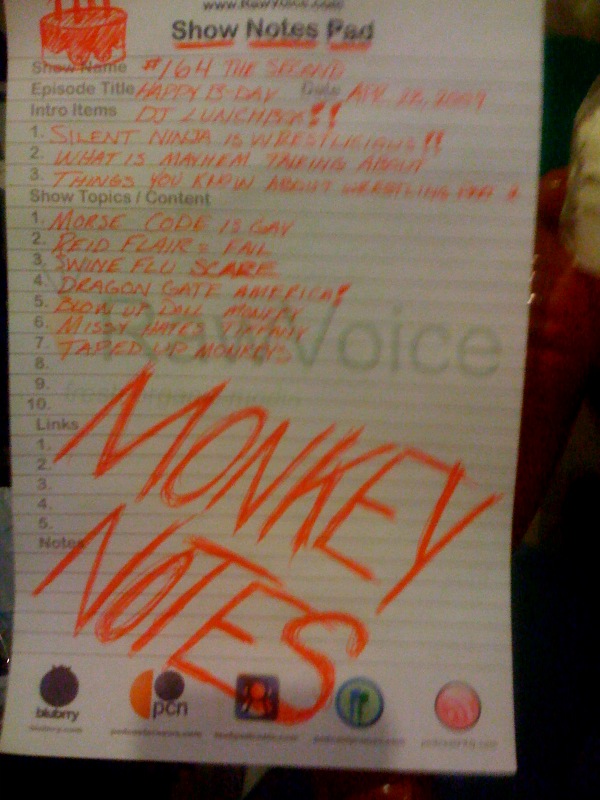 www.RawVoice.com
Show Notes Pad
Show Name #164 THE SECOND
Episode Title HAPPY B-DAY Date APR 28, 2009
Intro Items DJ LUNCHBOX!!
1. SILENT NINJA IS WRESTLICIOUS!!
2. WHAT IS MAYHEM TALKING ABOUT
3. THINGS YOU KNOW ABOUT WRESTLING
Show Topics / Content
1. MORSE CODE IS GAY
2. REID FLAIR = FAIL
3. SWINE FLU SCARE
4. DRAGON GATE AMERICA!
5. BLOW UP DOLL MONKEY
6. MISSY HATES TIFFANY
7. TAPED UP MONKEYS
8.
9.
10.
RawVoice
Links
1.
2.
3.
4.
5.
Notes
MONKEY
NOTES
blubrry
pcn